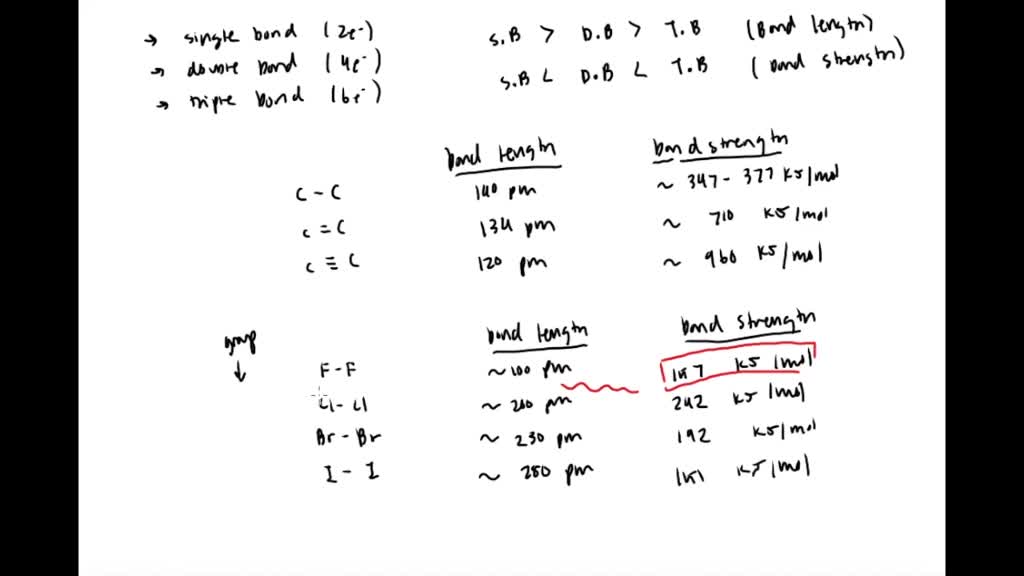 → single bond (2e⁻) S.B > D.B > T.B (Bond length)
→ double bond (4e⁻) S.B < D.B < T.B (bond strength)
→ triple bond (6e⁻)
bond length bond strength
C - C 140 pm ~ 347 - 377 KJ/mol
C = C 134 pm ~ 710 KJ/mol
C ≡ C 120 pm ~ 960 KJ/mol
group ↓ bond length bond strength
F - F ~ 100 pm 157 KJ/mol
Cl - Cl ~ 200 pm 242 KJ/mol
Br - Br ~ 230 pm 192 KJ/mol
I - I ~ 280 pm 151 KJ/mol